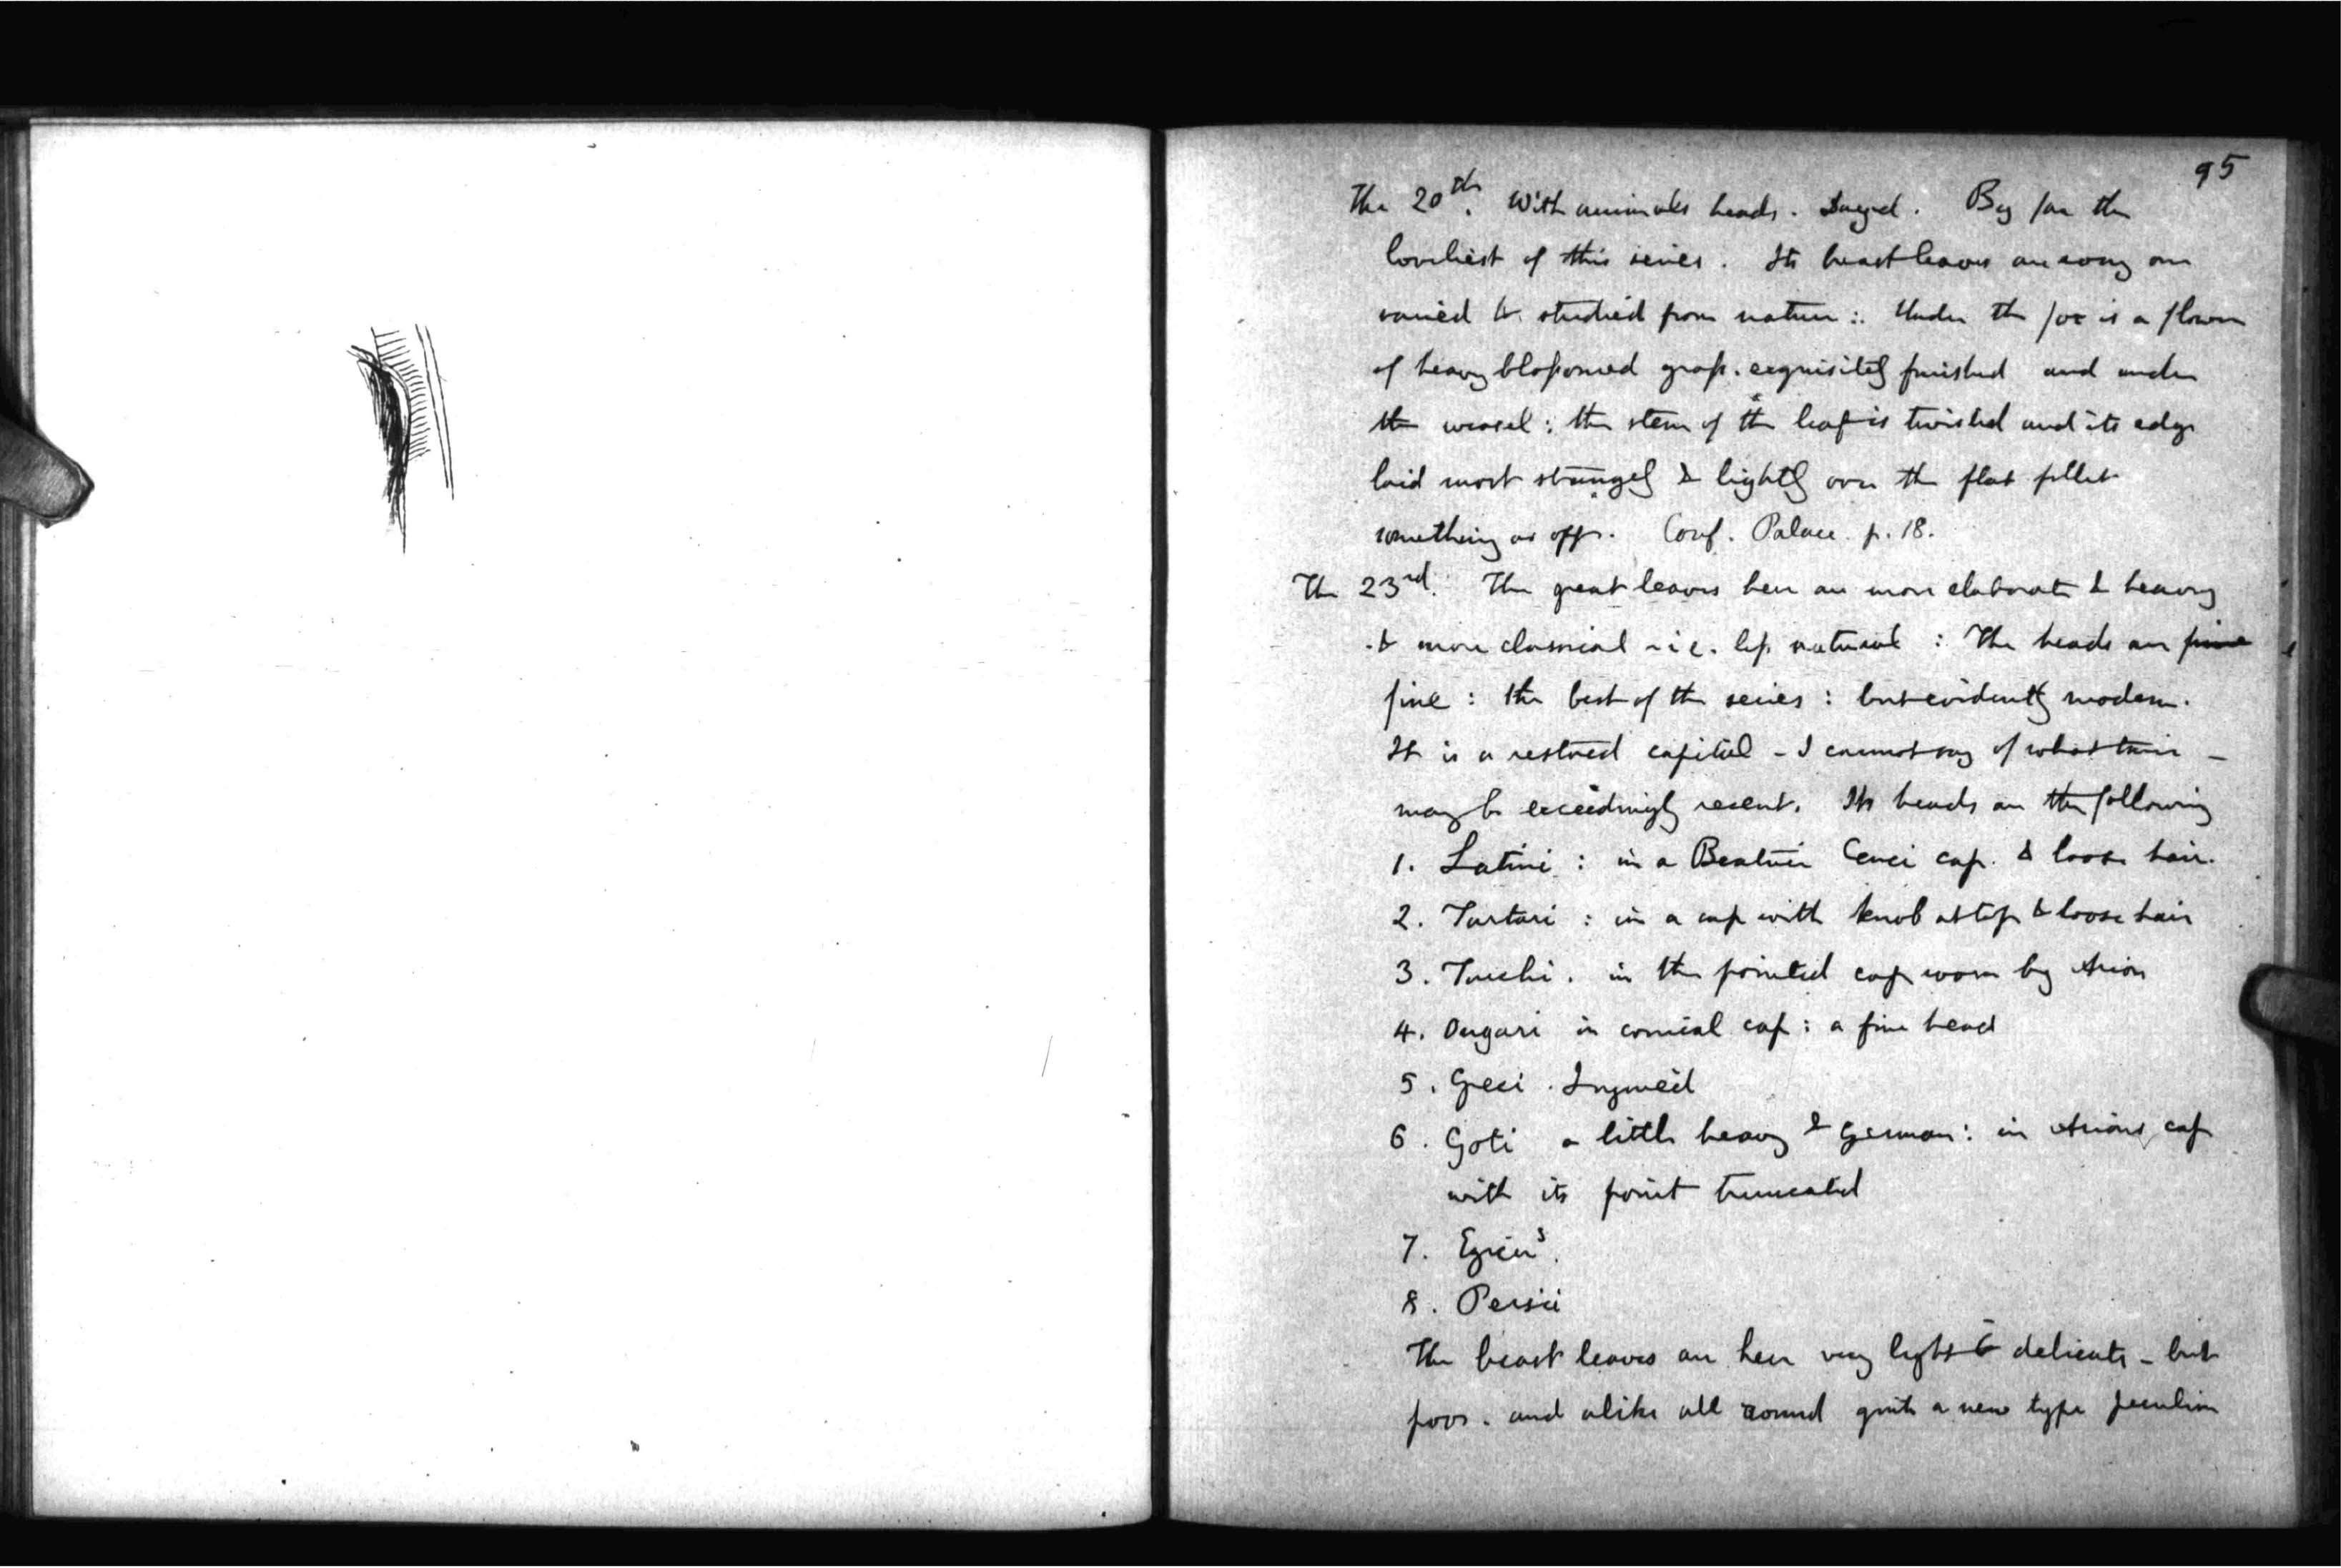 95
The 20th. With animals heads. Dagud. By far the
loveliest of this series. Its breast leaves are every one
varied & studied from nature: Under the fox is a flower
of heavy blossomed grass. exquisitely finished and under
the weasel: the stem of the leaf is twisted and its edge
laid most strangely & lightly over the flat fillet
something as opp. Conf. Palace. p. 18.
The 23rd. The great leaves here are more elaborate & heavy
& more classical - i.e. less natural: The heads are fine
fine: the best of the series: but evidently modern.
It is a restored capital - I cannot say of what time -
may be exceedingly recent. Its heads are the following
1. Latini: in a Beatrice Cenci cap. & loose hair.
2. Tartari: in a cap with knob at top & loose hair
3. Turchi. in the pointed cap worn by Arion
4. Ongari in conical cap: a fine head
5. Greci. Injured
6. Goti a little heavy & German: in Arions cap
with its point truncated
7.
8. Persii
The breast leaves are here very light & delicate - but
poor. and alike all round quite a new type peculiar